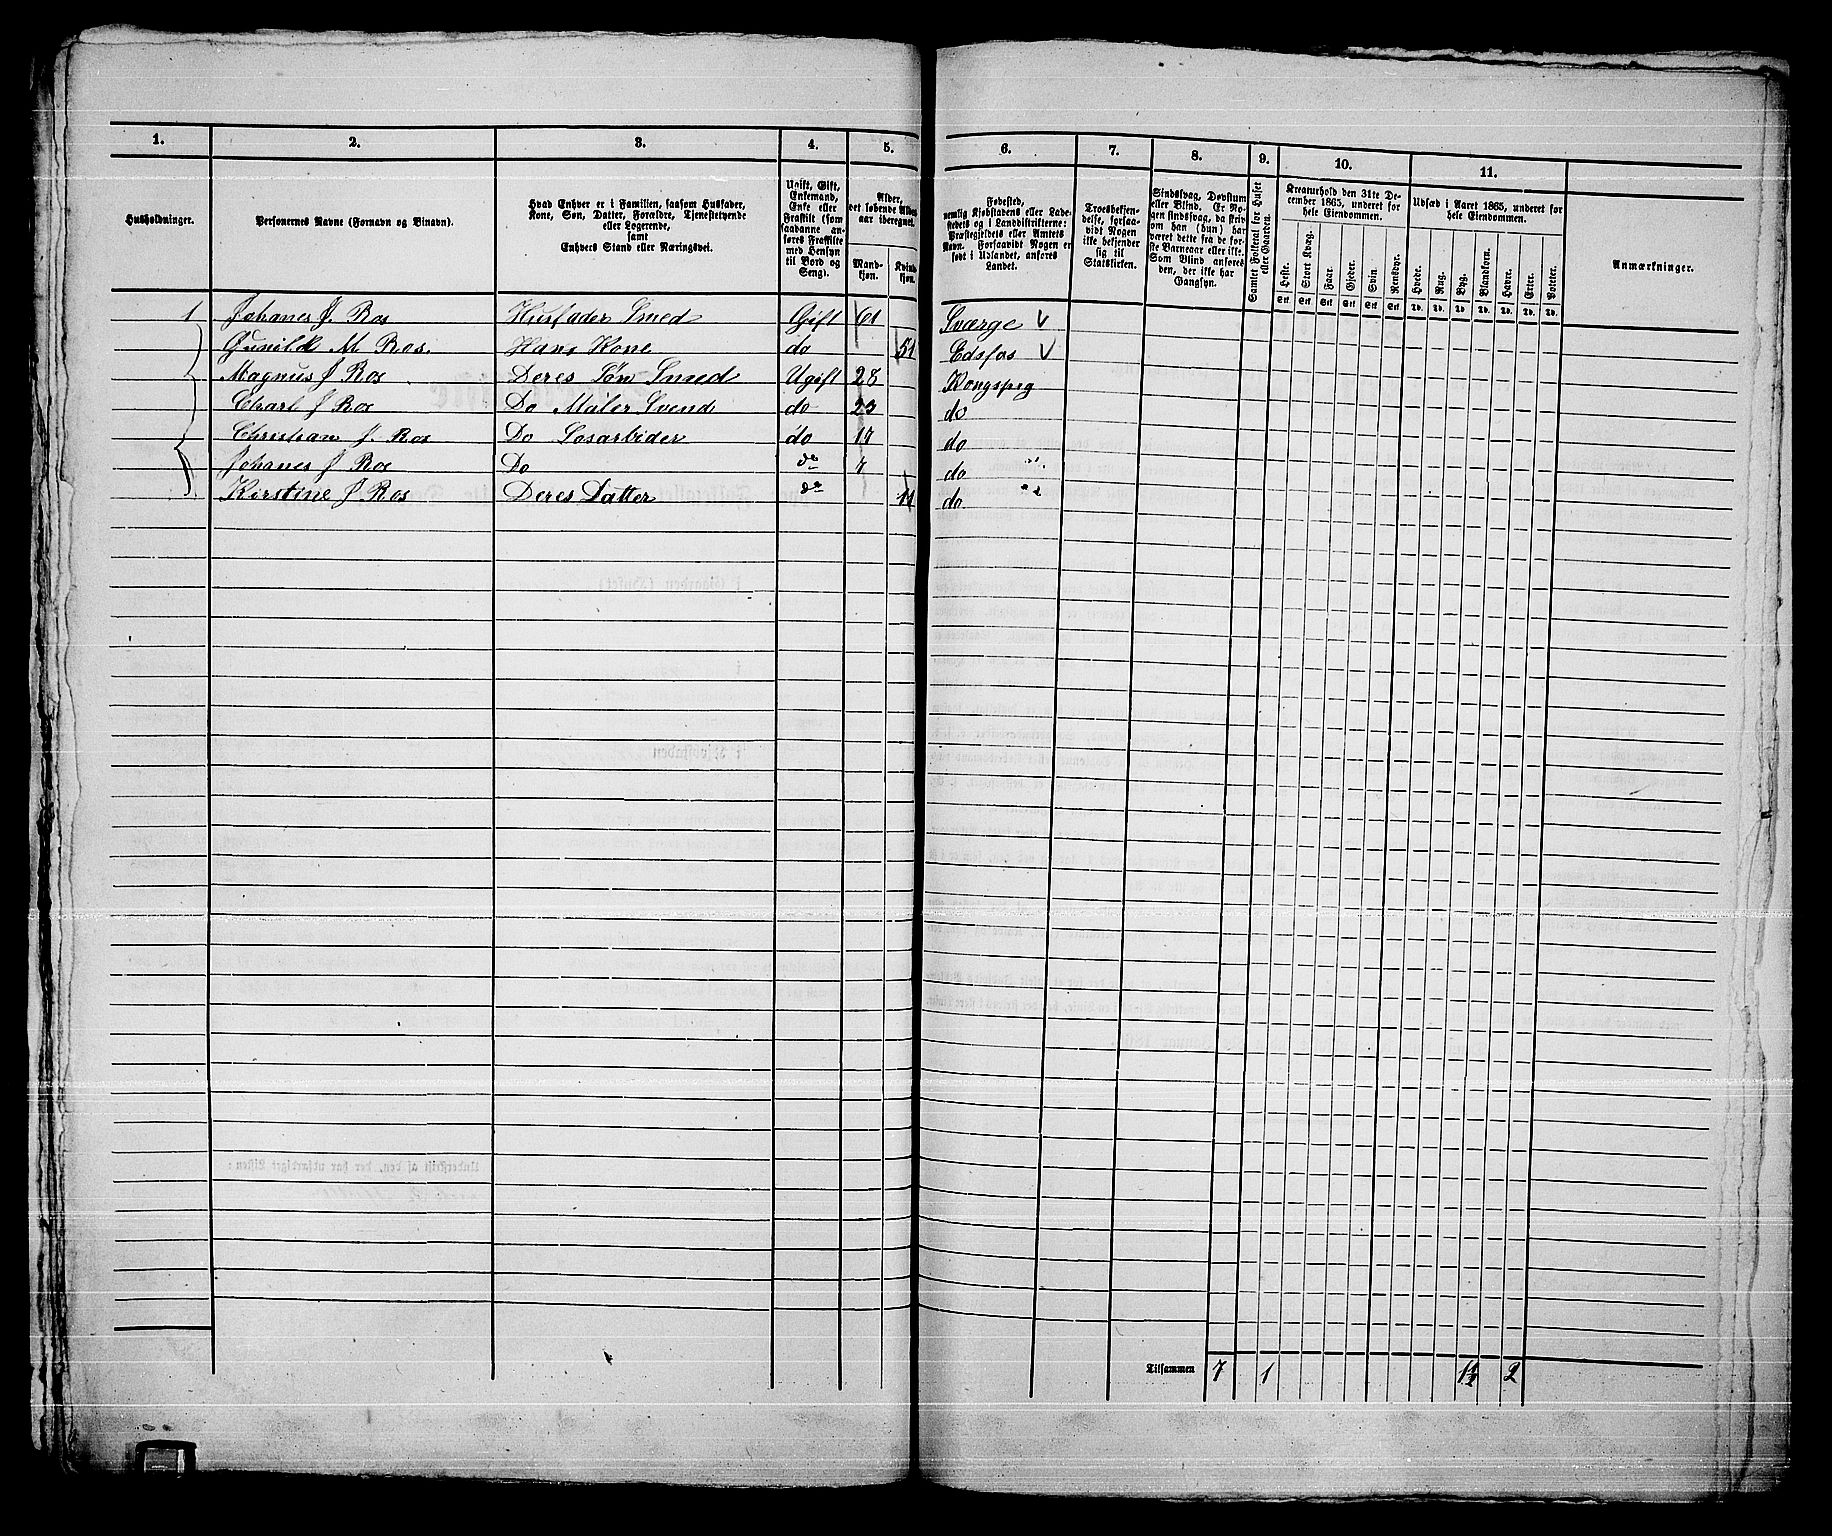 1. 2. 3. 4. 5. 6. 7. 8. 9. 10. 11.
Husholdninger.
Personernes Navne (Fornavn og Binavn).
Hvad Enhver er i Familien, saasom Husfader,
Kone, Søn, Datter, Forældre, Tjenestetyende
eller Logerende,
samt
Enhvers Stand eller Næringsvei.
Ugift, Gift,
Enkemand,
Enke eller
Fraskilt (som
saadanne an-
føres Fraskilte
med Hensyn
til Bord og
Seng).
Alder,
det løbende Alders-
aar iberegnet.
Mand-
kjøn.
Kvinde-
kjøn.
Fødested,
nemlig Kjøbstadens eller Lade-
stedets og i Landdistrikterne:
Præstegjeldets eller Amtets
Navn. Forsaavidt Nogen er
født i Udlandet, anføres
Landet.
Troesbekjen-
delse, forsaa-
vidt Nogen
ikke bekjender
sig til
Statskirken.
Sindssvag, Døvstum
eller Blind. Er No-
gen sindssvag, da skriv
om han (hun) har
været dette fra de før-
ste Barneaar eller ikke.
Som Blind anføres
den, der ikke har
Gangsyn.
Samlet Folketal for Huset
eller Gaarden.
Kreaturhold den 31te De-
cember 1865, underet for
hele Eiendommen.
Heste. Stort Kvæg. Faar. Gjeder. Svin. Rensdyr.
Stk. Stk. Stk. Stk. Stk. Stk.
Udsæd i Aaret 1865, underet for
hele Eiendommen.
Hvede. Rug. Byg. Blandkorn. Havre. Erter. Poteter.
Td. Td. Td. Td. Td. Td. Td.
Anmærkninger.
1 Johanes J. Ros Husfader Smed Gift 61 Sværge
Gunild M Ros. Hans Kone do 51 Edsfos
Magnus J Ros Deres Søn Smed Ugift 28 Kongspig
Charl J Ros Do Maler Svend do 23 do
Christian J. Ros Do Løsarbider do 17 do
Johanes J Ros Do do 7 do
Kirstine J Ros Deres Datter do 11 do
Tilsammen 7 1 1½ 2